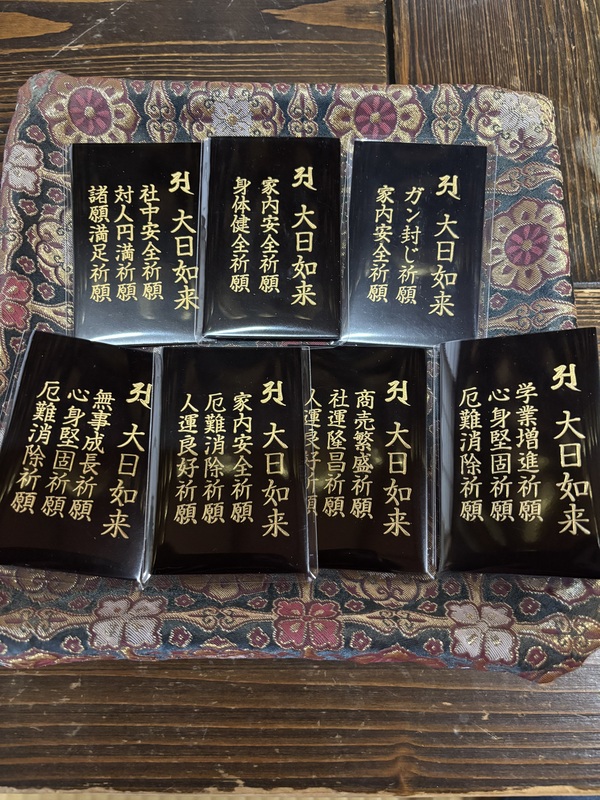 大日如来
社中安全祈願
対人円満祈願
諸願満足祈願
大日如来
家内安全祈願
身体健全祈願
大日如来
ガン封じ祈願
家内安全祈願
大日如来
無事成長祈願
心身堅固祈願
厄難消除祈願
大日如来
家内安全祈願
厄難消除祈願
人運良好祈願
大日如来
商売繁盛祈願
社運隆昌祈願
人運良好祈願
大日如来
学業増進祈願
心身堅固祈願
厄難消除祈願